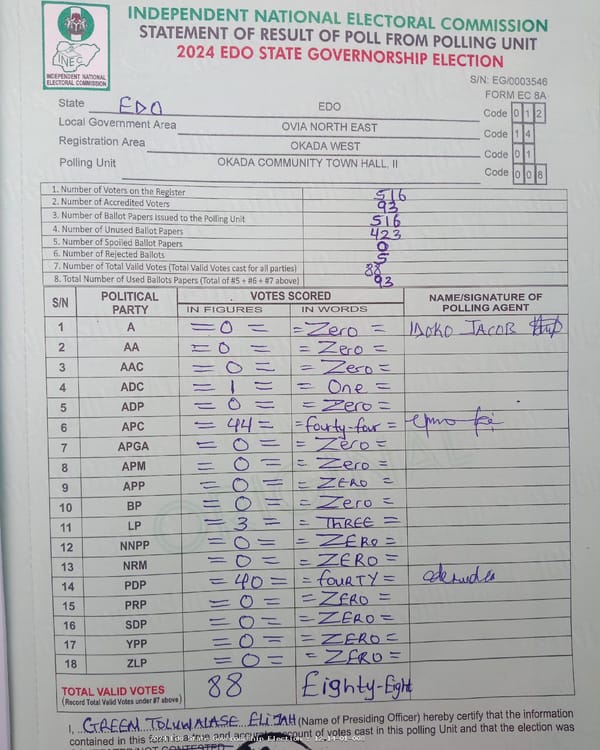 INDEPENDENT NATIONAL ELECTORAL COMMISSION
STATEMENT OF RESULT OF POLL FROM POLLING UNIT
2024 EDO STATE GOVERNORSHIP ELECTION
INEC
INDEPENDENT NATIONAL
ELECTORAL COMMISSION
S/N: EG/0003546
FORM EC 8A
State EDO EDO Code 0 1 2
Local Government Area OVIA NORTH EAST Code 1 4
Registration Area OKADA WEST Code 0 1
Polling Unit OKADA COMMUNITY TOWN HALL, II Code 0 0 8
1. Number of Voters on the Register 516
2. Number of Accredited Voters 93
3. Number of Ballot Papers Issued to the Polling Unit 516
4. Number of Unused Ballot Papers 423
5. Number of Spoiled Ballot Papers 0
6. Number of Rejected Ballots 5
7. Number of Total Valid Votes (Total Valid Votes cast for all parties) 88
8. Total Number of Used Ballots Papers (Total of #5 + #6 + #7 above) 93
S/N POLITICAL PARTY VOTES SCORED NAME/SIGNATURE OF POLLING AGENT
IN FIGURES IN WORDS
1 A =0= =Zero= IDOKO JACOB
2 AA =0= =Zero=
3 AAC =0= =Zero=
4 ADC =1= =One=
5 ADP =0= =Zero=
6 APC =44= =fourty-four=
7 APGA =0= =Zero=
8 APM =0= =Zero=
9 APP =0= =ZERO=
10 BP =0= =Zero=
11 LP =3= =THREE=
12 NNPP =0= =ZERO=
13 NRM =0= =ZERO=
14 PDP =40= =fOURTY=
15 PRP =0= =ZERO=
16 SDP =0= =ZERO=
17 YPP =0= =ZERO=
18 ZLP =0= =ZERO=
TOTAL VALID VOTES 88 Eighty-Eight
(Record Total Valid Votes under #7 above)
I, GREEN TOLUWALASE ELIJAH (Name of Presiding Officer) hereby certify that the information
contained in this form is a true and accurate count of votes cast in this polling Unit and that the election was